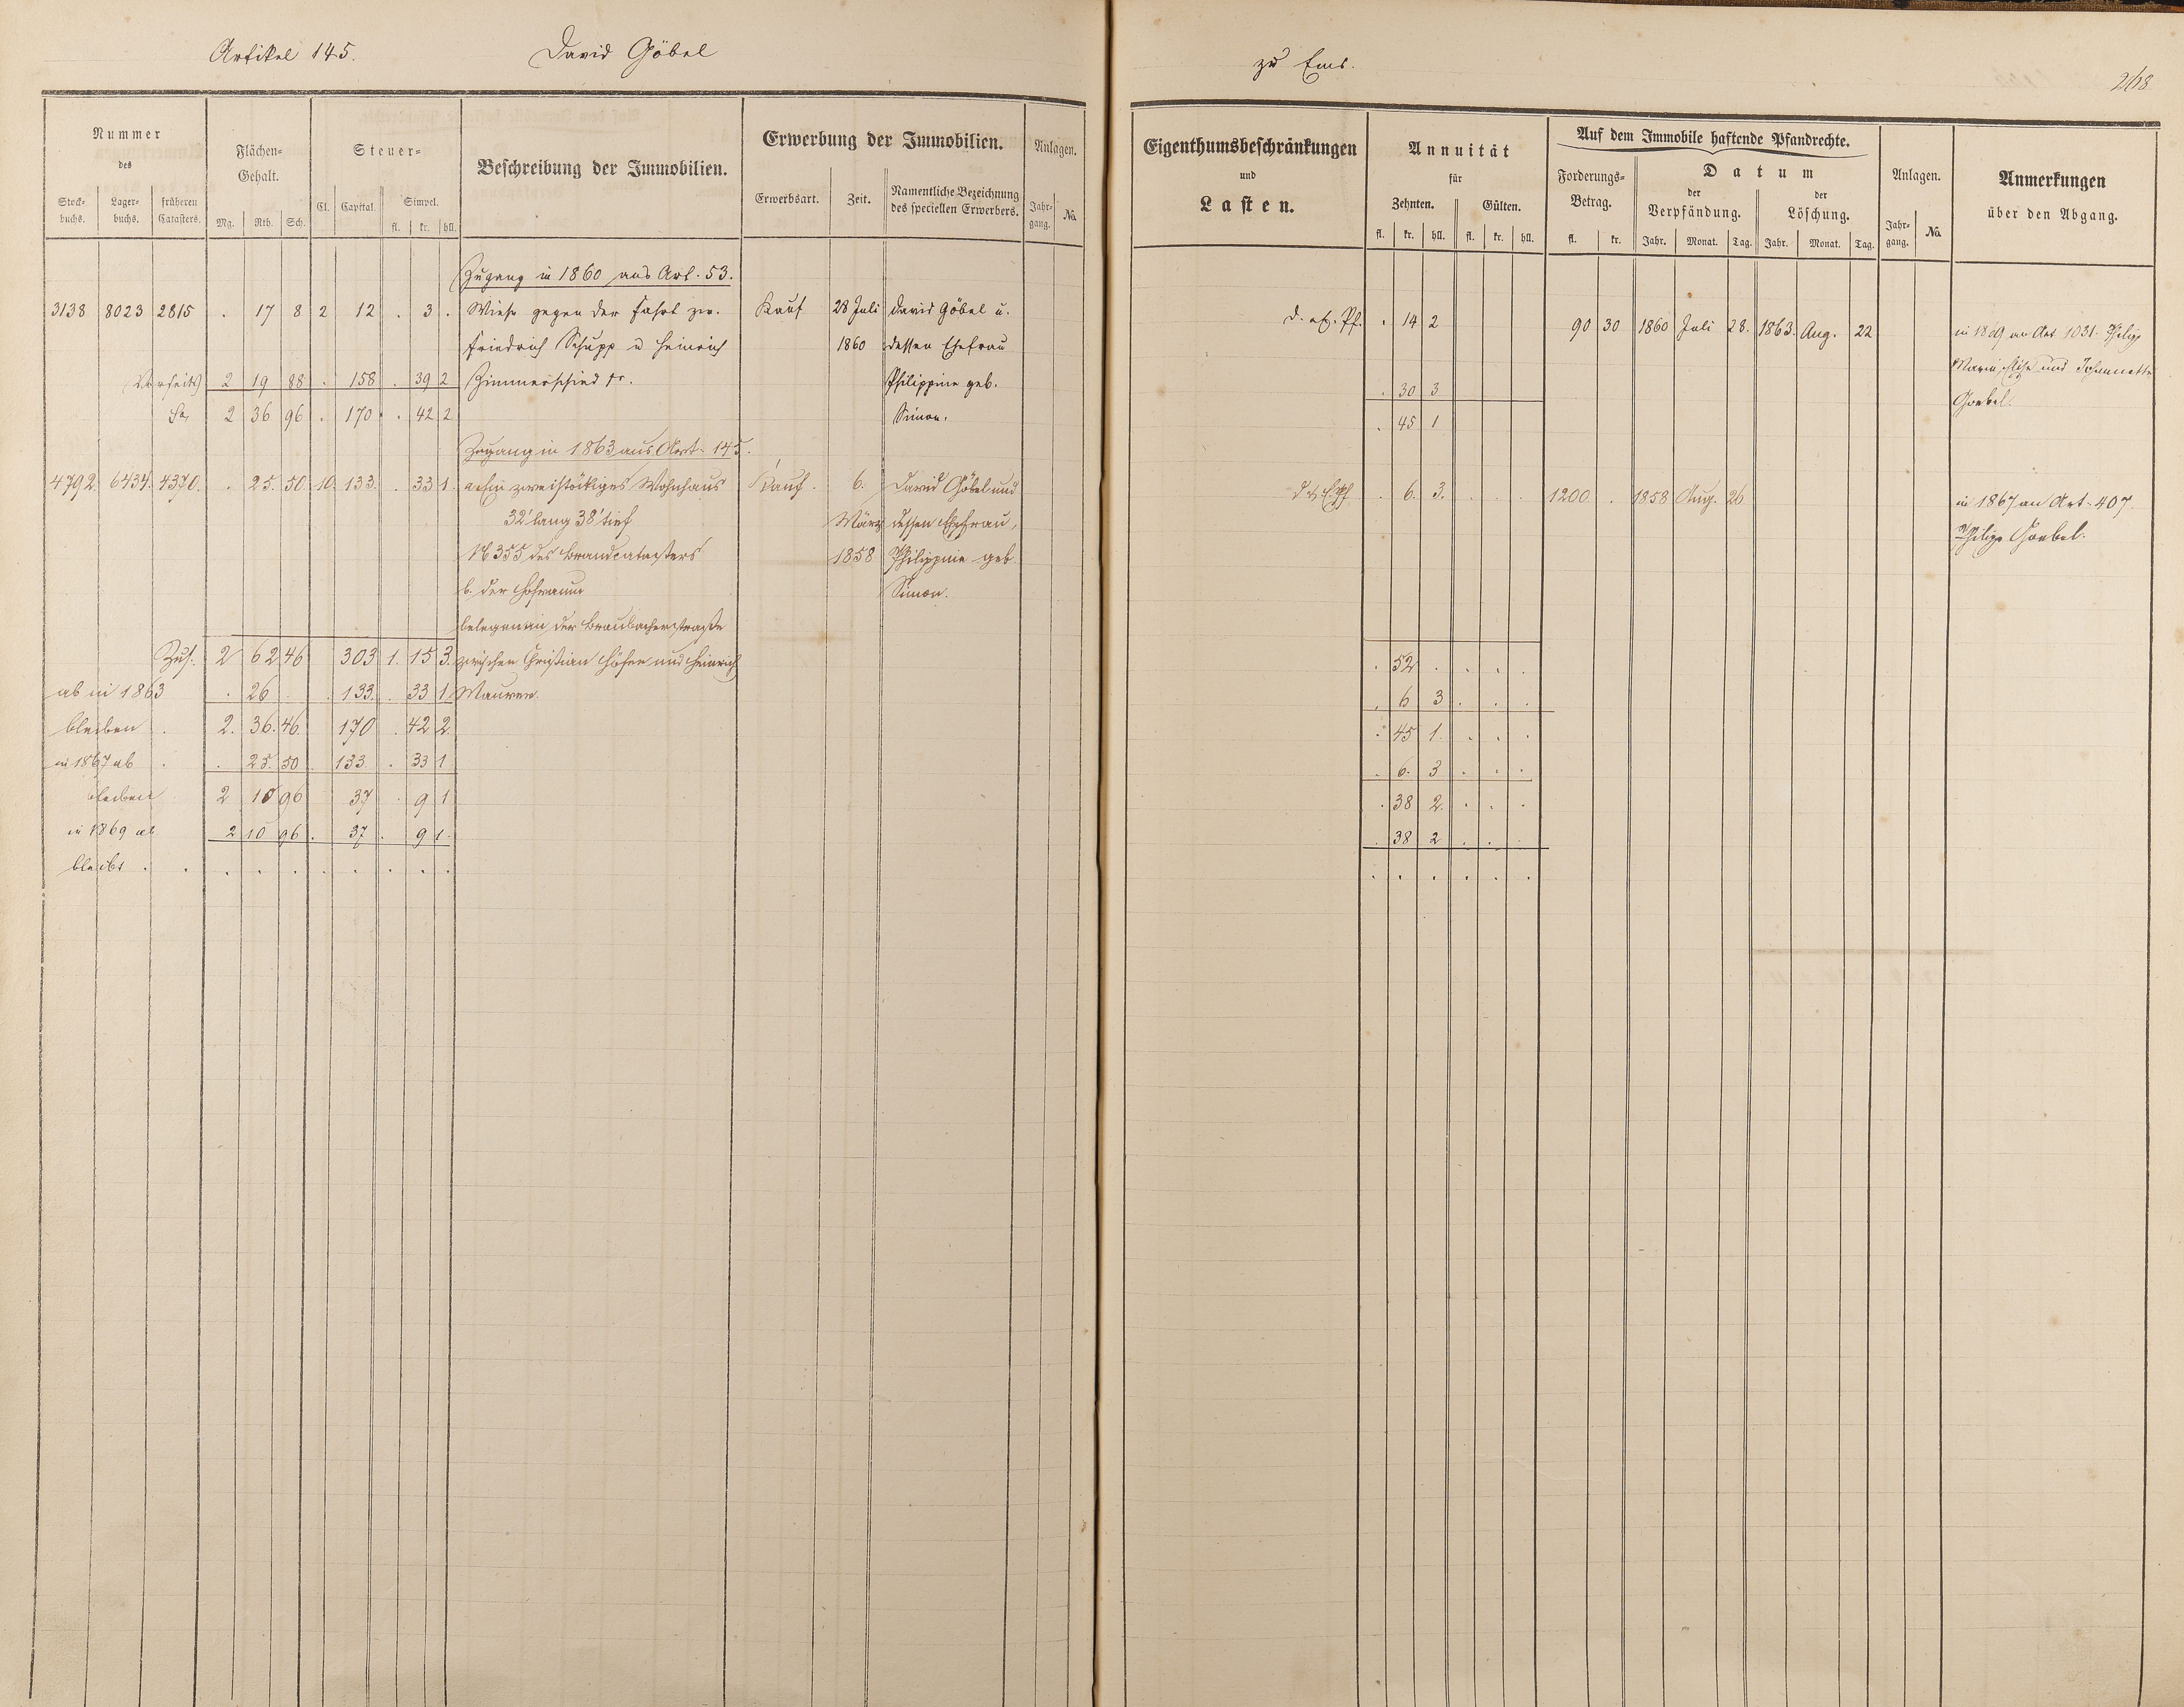 Artikel 145. David Göbel zu Ems. 268
Nummer des
Stock-buchs. Lager-buchs. früheren Catasters.
Flächen-Gehalt.
Mg. Rth. Sch.
Steuer-
Cl. Capital. Simpel.
fl. kr. hll.
Beschreibung der Immobilien.
Erwerbung der Immobilien.
Erwerbsart. Zeit. Namentliche Bezeichnung des speciellen Erwerbers.
Anlagen.
Jahr-gang. No.
Eigenthumsbeschränkungen
und
Lasten.
Annuität
für
Zehnten. Gülten.
fl. kr. hll. fl. kr. hll.
Auf dem Immobile haftende Pfandrechte.
Forderungs-Betrag.
fl. kr.
Datum
der Verpfändung. der Löschung.
Jahr. Monat. Tag. Jahr. Monat. Tag.
Anlagen.
Jahr-gang. No.
Anmerkungen
über den Abgang.
Zugang in 1860 aus Art. 53.
3138 8023 2815 . 17 8 2 12 . 3 . Wiese gegen der Fahrt zw. Kauf 28 Juli David Göbel u. . 14 2 90 30 1860 Juli 28. 1863. Aug. 22 in 1869 an Art 1031. Philipp
Friedrich Schupp u Heinrich 1860 dessen Ehefrau Marie, Elise und Johannette
Vorseite 2 19 88 . 158 . 39 2 Zimmerschied Philippine geb. . 30 3 Goebel.
Sa 2 36 96 . 170 . 42 2 Simon. . 45 1
Zugang in 1863 aus Art. 145.
4792. 6434. 4370. . 25. 50. 10. 133. . 33 1. a. Ein zweistökiges Wohnhaus Kauf. 6. David Göbel und . 6. 3. . . . 1200 . 1858 Aug. 26 in 1867 an Art. 407.
32' lang 38' tief März dessen Ehefrau, Philipp Goebel.
N 355 des Brandcatasters 1858 Philippine geb
b. der Hofraum Simon.
belegen in der Braubacherstraße
Zus. 2 62 46 303 1. 15 3. zwischen Christian Höfer und Heinrich . 52 . . . .
ab in 1863 . 26 . . 133. . 33 1 Maurer. . 6 3 . . .
bleiben . 2. 36. 46. 170 . 42 2. . 45 1. . . .
in 1867 ab . . 25. 50 133. . 33 1 . 6. 3 . . .
bleiben 2 10 96 37 . 9 1 . 38 2. . . .
in 1869 ab 2 10 96 . 37 . 9 1. . 38 2 . . .
bleibt . . . . . . . . . . . . . . . .